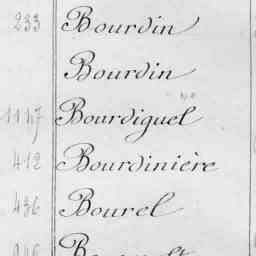 233 Bourdin
Bourdin
1147 Bourdiguel
412 Bourdinière
436 Bourel